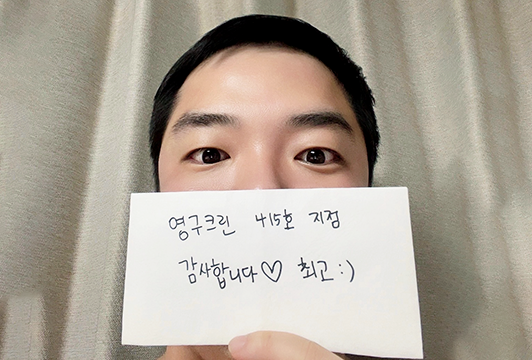 영구크린 415호 지점
감사합니다♡ 최고 :)